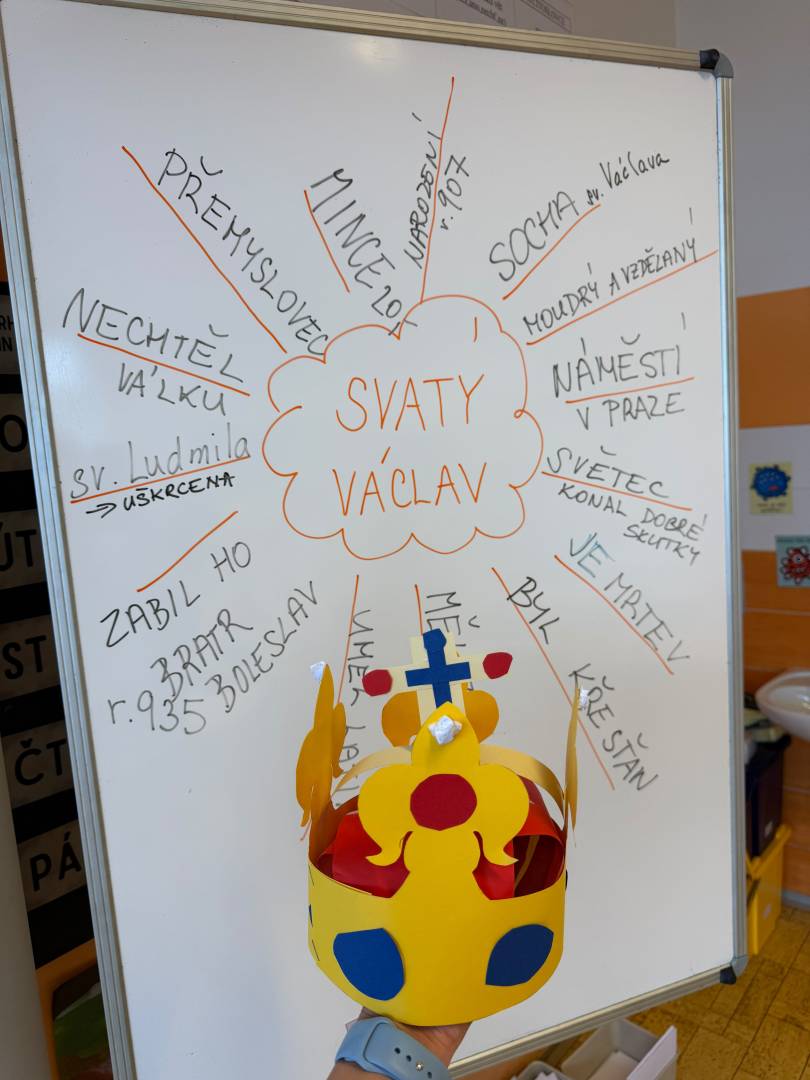 SVATÝ
VÁCLAV
NAROZENÍ
r. 907
SOCHA sv. Václava
MOUDRÝ A VZDĚLANÝ
NÁMĚSTÍ
V PRAZE
SVĚTEC
KONAL DOBRÉ
SKUTKY
JE MRTEV
BYL KŘESŤAN
ZABIL HO
BRATR
r. 935 BOLESLAV
sv. Ludmila
→ UŠKRCENA
NECHTĚL
VÁLKU
PŘEMYSLOVEC
MINCE 20,-
ÚT
ST
ČT
PÁ